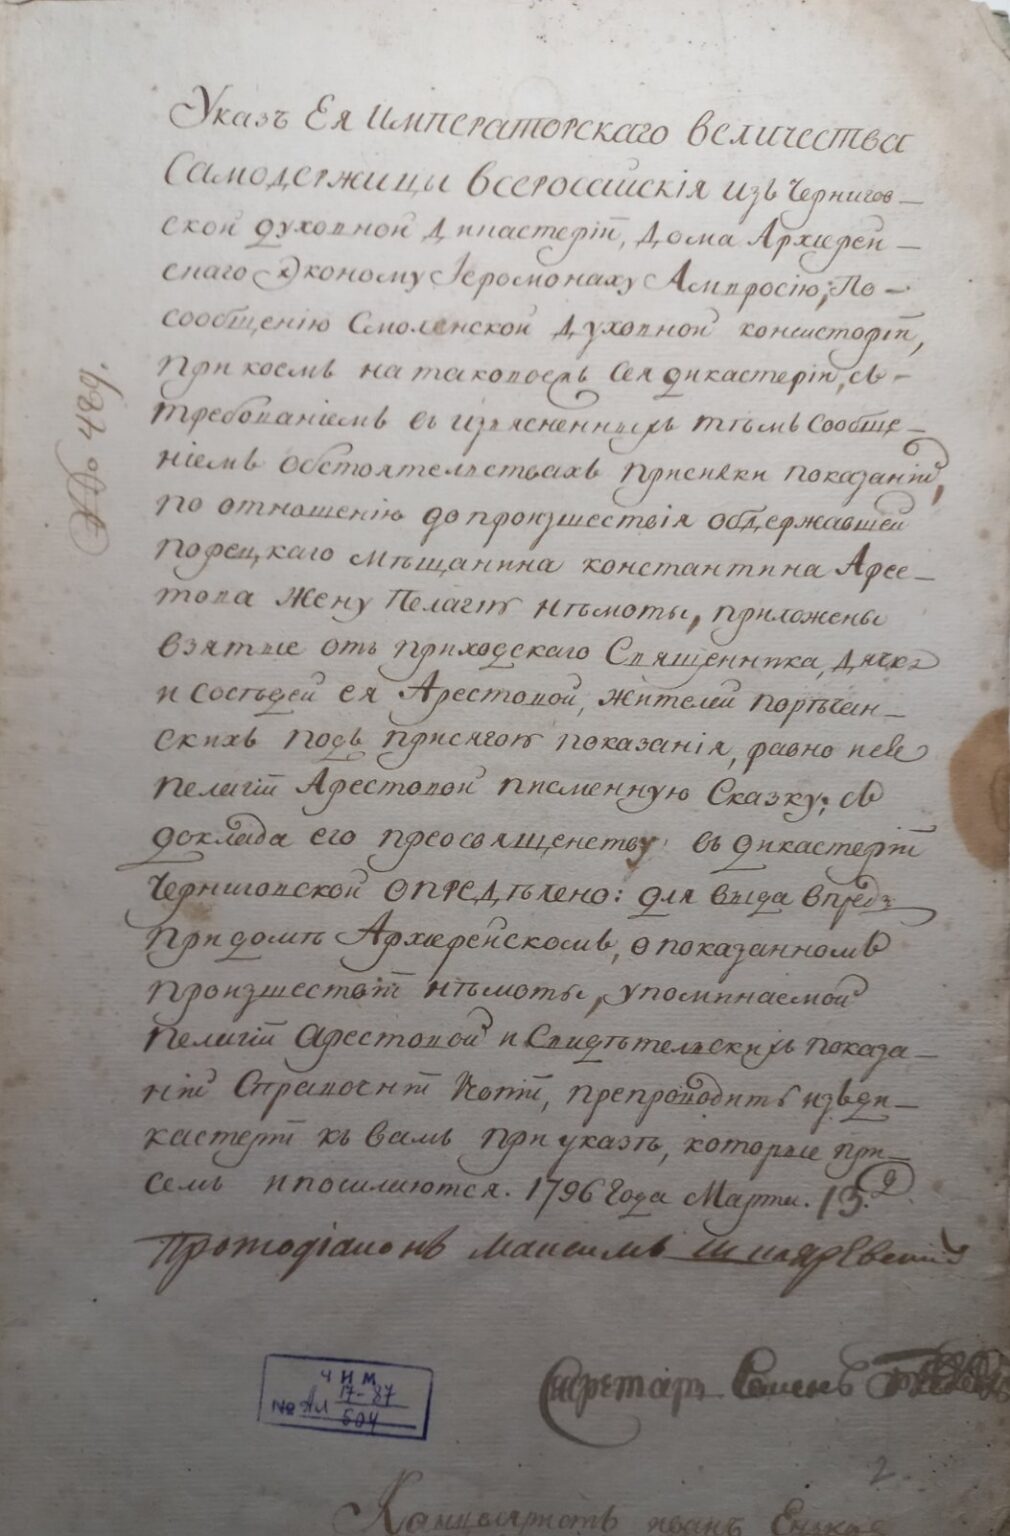 Указъ Ея Императорскаго величества
Самодержицы всеросійскія изъ Чернигов-
ской духовной дикастеріи, дома Архиерей-
скаго Эконому Іеромонаху Амвросію; По-
сообщенію Смоленской духовной консисторіи,
при коемъ на таковоежъ сея дикастеріи, съ-
требованіемъ въ изъясненныхъ тѣмъ сообще-
ніемъ обстоятельствахъ присилки показаній,
по отношенію до произшествія обдержавшей
порецкаго мѣщанина константина Арес-
това жену Пелагію нѣмоты, приложены
взятые отъ приходскаго Священника, дячка
и состьдей ея Арестовой, жителей порѣчан-
скихъ подъ присягою показанія, равно и ея
пелагіи Арестовой писменную Сказку; съ
доклада его преосвященству въ дикастеріи
Черниговской опредѣлено: для вида впредь
при домѣ Архиерейскомъ, о показанномъ
произшествіи нѣмоты, упоминаемой
пелагіи Арестовой и Свидѣтельскихъ показа-
ній Справочнія Копіи, препроводить изъ ди-
кастеріи къ вамъ при указѣ, которые при
семъ и посилаются. 1796 Года Марта. 13. д
Протодіаконъ Максимъ
Секретарь Семенъ
Канцеляристъ Иванъ
№ 489.
Ч Н М
№ Ал 17-87
504
2